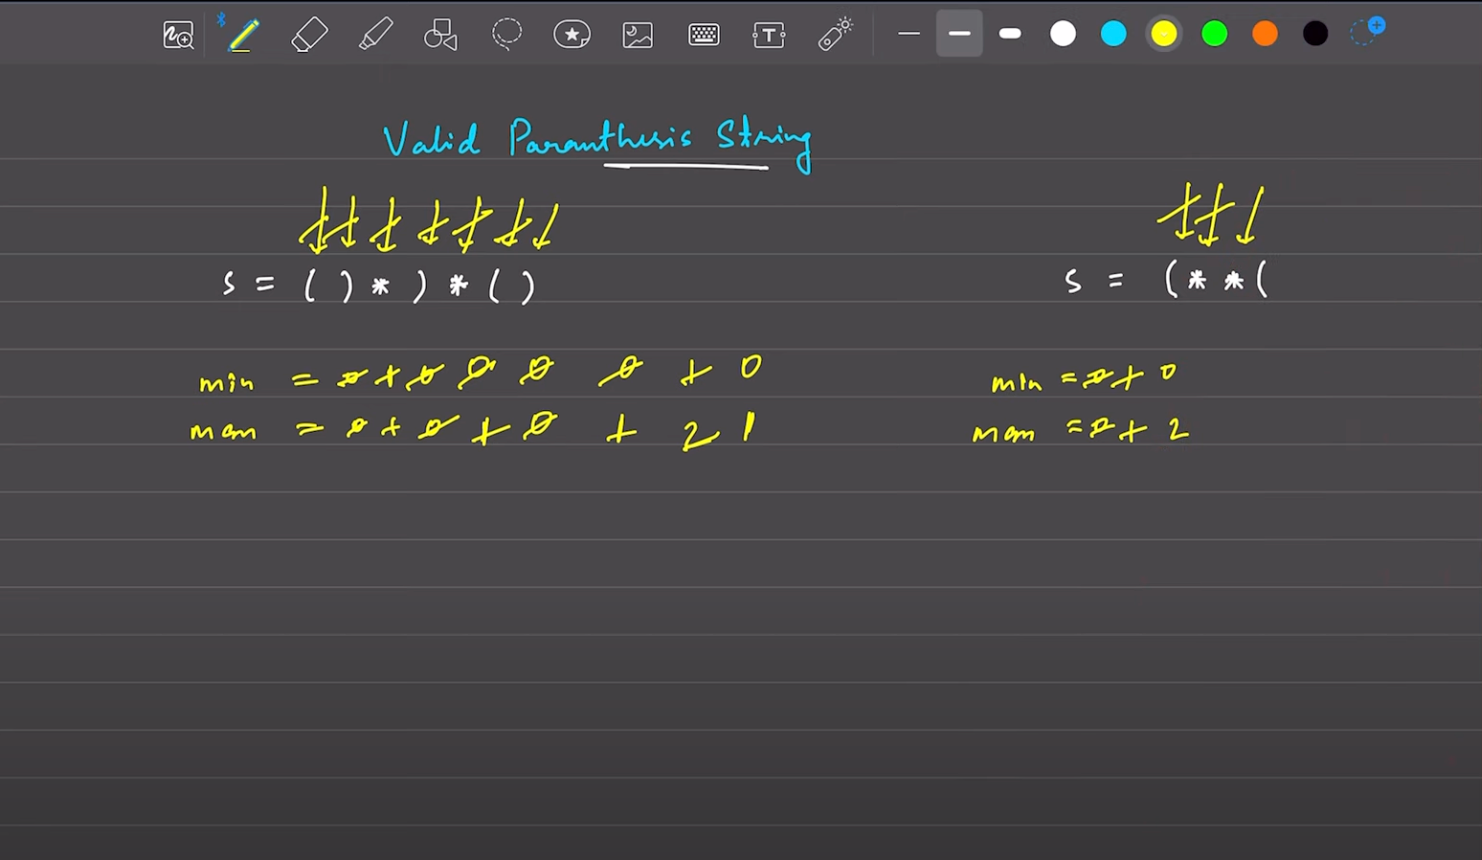 Valid Paranthesis String
s = ( ) * ) * ( )
s = ( * * (
min = 0 1 0 0 0 0 1 0
max = 0 1 0 1 0 1 2 1
min = 0 1 0
max = 0 1 2